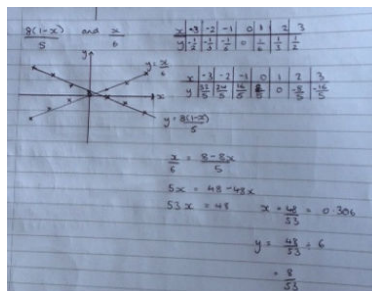 8(1-x)/5 and x/6
x | -3 | -2 | -1 | 0 | 1 | 2 | 3
y | -1/2 | -1/3 | -1/6 | 0 | 1/6 | 1/3 | 1/2
y
y = x/6
x
y = 8(1-x)/5
x | -3 | -2 | -1 | 0 | 1 | 2 | 3
y | 32/5 | 24/5 | 16/5 | 8/5 | 0 | -8/5 | -16/5
x/6 = 8-8x/5
5x = 48-48x
53x = 48
x = 48/53 = 0.906
y = 48/53 ÷ 6
= 8/53